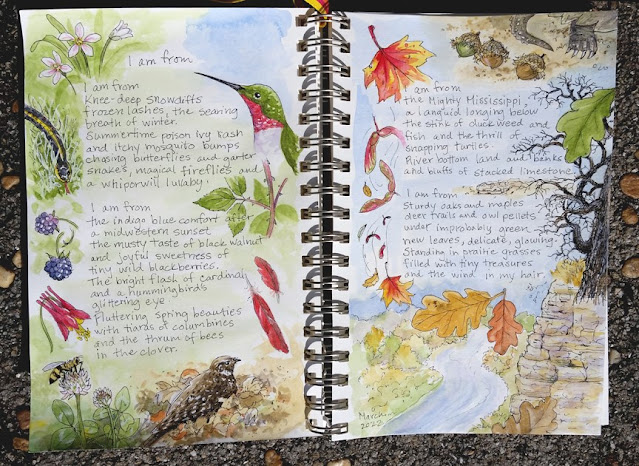 I am from
I am from
Knee-deep snowdrifts
frozen lashes, the searing
breath of winter.
Summertime poison ivy rash
and itchy mosquito bumps
chasing butterflies and garter
snakes, magical fireflies and
a whiporwill lullaby.
I am from
the indigo blue comfort after
a midwestern sunset
the musty taste of black walnut
and joyful sweetness of
tiny wild blackberries.
The bright flash of cardinal
and a hummingbird's
glittering eye.
Fluttering Spring beauties
with tiaras of columbines
and the thrum of bees
in the clover.
I am from
the Mighty Mississippi,
a languid longing below
the stink of duck weed and
fish and the thrill of
snapping turtles.
River bottom land and banks
and bluffs of stacked limestone.
I am from
Sturdy oaks and maples
deer trails and owl pellets
under improbably green
new leaves, delicate, glowing.
Standing in prairie grasses
filled with tiny treasures
and the wind in my hair.
March
2022